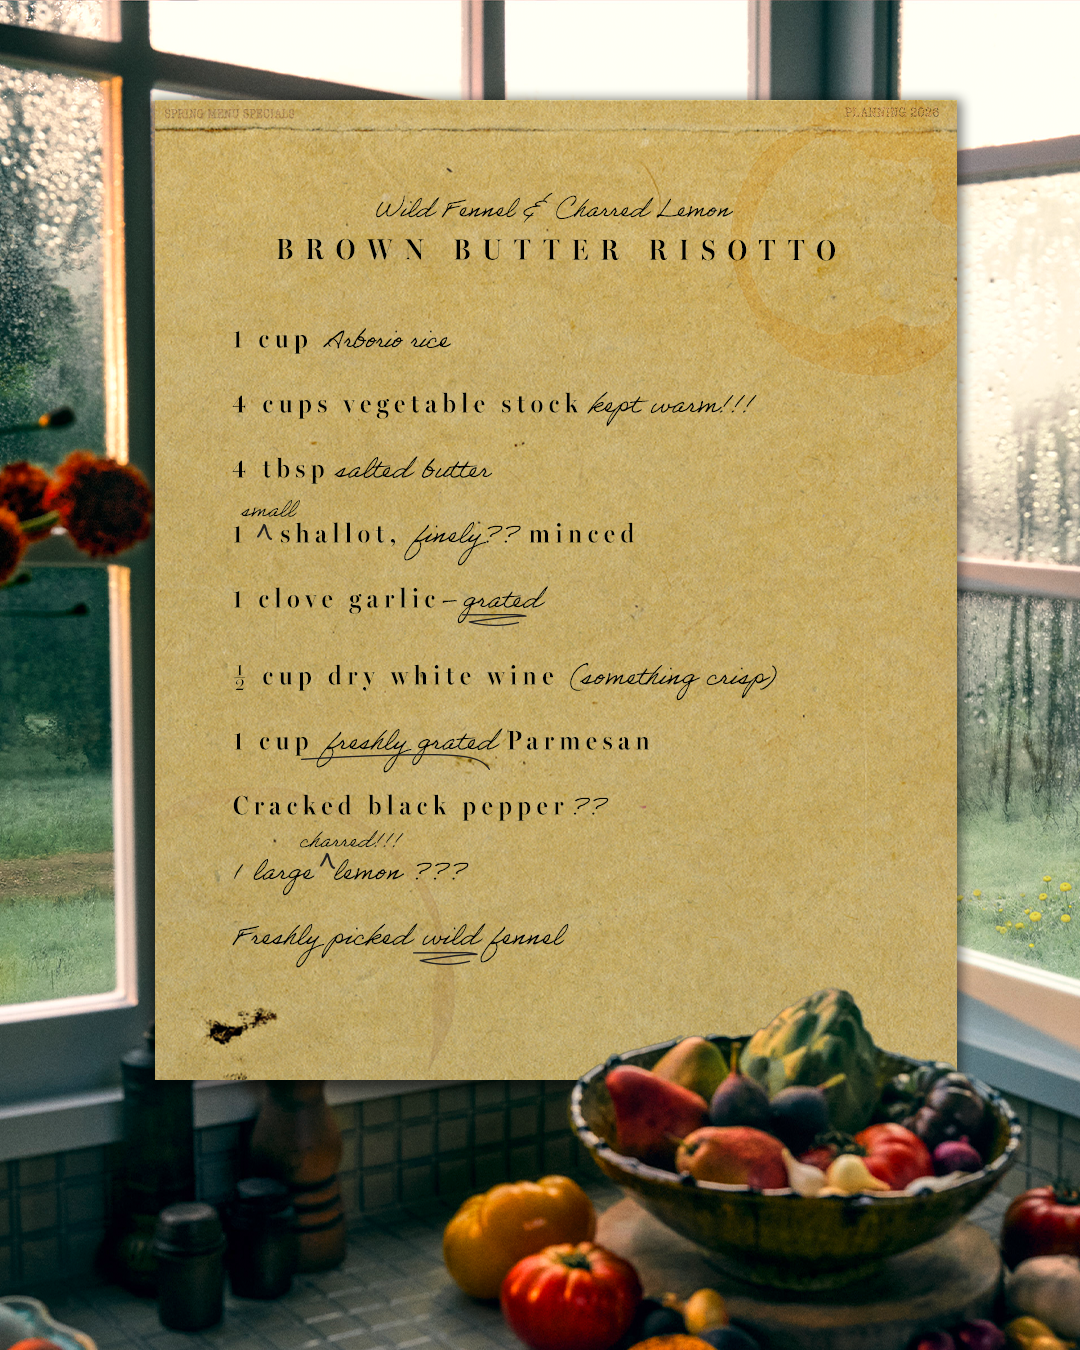 SPRING MENU SPECIALS
PLANNING 2026
Wild Fennel & Charred Lemon
BROWN BUTTER RISOTTO
1 cup Arborio rice
4 cups vegetable stock kept warm!!!
4 tbsp salted butter
small
1 ^ shallot, finely?? minced
1 clove garlic – grated
½ cup dry white wine (something crisp)
1 cup freshly grated Parmesan
Cracked black pepper ??
charred!!!
1 large ^ lemon ???
Freshly picked wild fennel